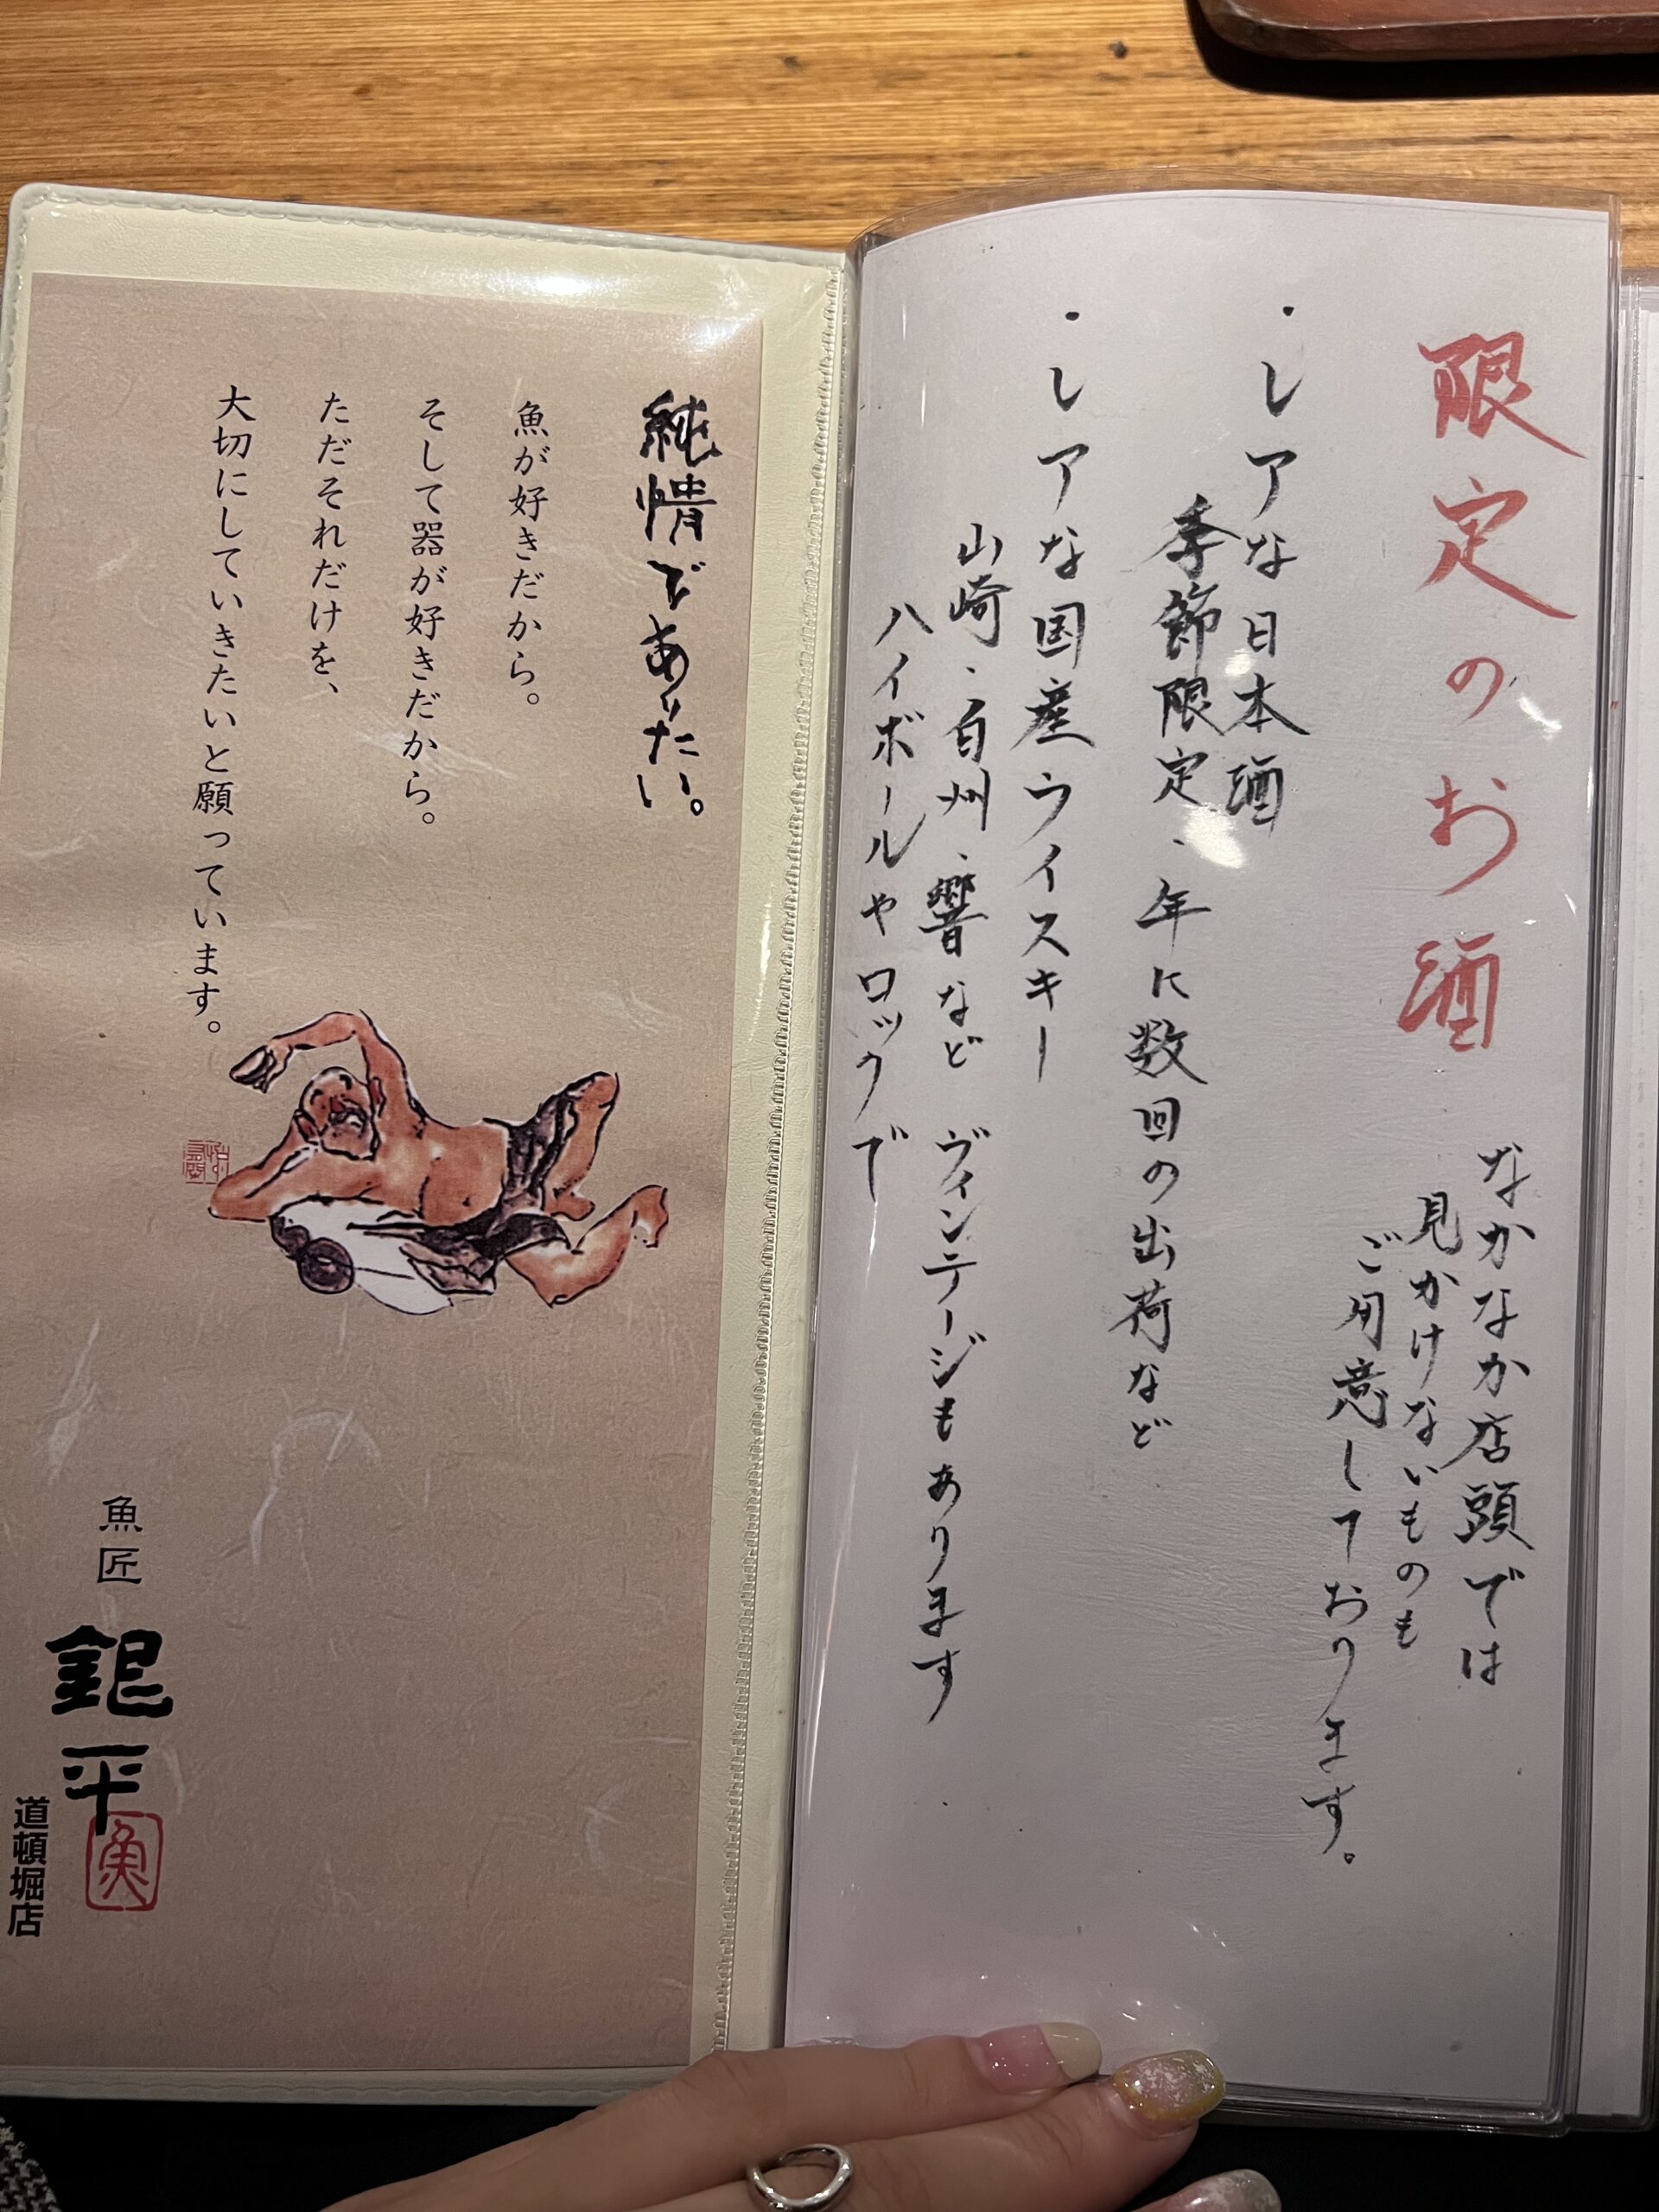 限定のお酒
なかなか店頭では
見かけないものも
ご用意しております。
・レアな日本酒
季節限定、年に数回の出荷など
・レアな国産ウイスキー
山崎、白州、響など ヴィンテージもあります
ハイボールやロックで
純情でありたい。
魚が好きだから。
そして器が好きだから。
ただそれだけを、
大切にしていきたいと願っています。
魚匠
銀平
魚
道頓堀店